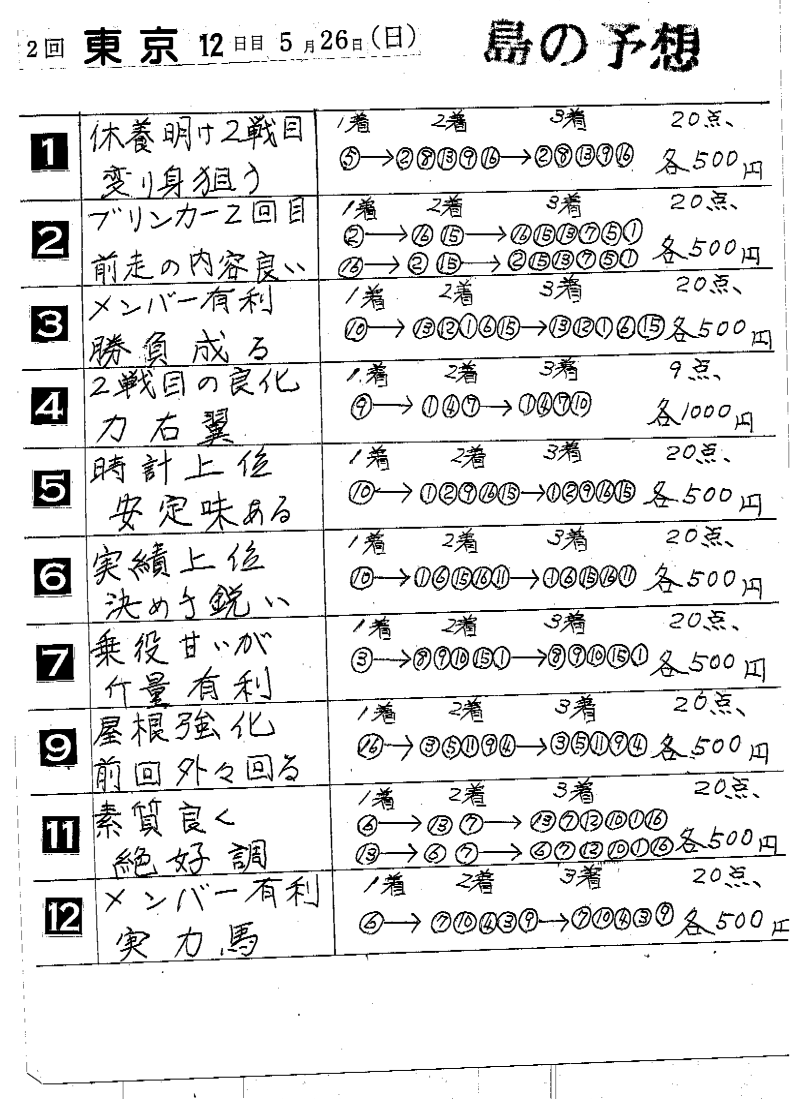 2回 東京 12日目 5月26日(日) 島の予想
1 休養明け2戦目 変り身狙う
1着 2着 3着 20点、
⑤→②⑧⑬⑨⑯→②⑧⑬⑨⑯ 各500円
2 ブリンカー2回目 前走の内容良い
1着 2着 3着 20点、
②→⑯⑮→⑯⑮⑬⑦⑤①
⑯→②⑮→②⑮⑬⑦⑤① 各500円
3 メンバー有利 勝負成る
1着 2着 3着 20点、
⑩→⑬⑫①⑥⑮→⑬⑫①⑥⑮ 各500円
4 2戦目の良化 力右翼
1着 2着 3着 9点、
⑨→①④⑦→①④⑦⑩ 各1000円
5 時計上位 安定味ある
1着 2着 3着 20点、
⑩→①②⑨⑯⑮→①②⑨⑯⑮ 各500円
6 実績上位 決め手鋭い
1着 2着 3着 20点、
⑩→①⑥⑮⑯⑪→①⑥⑮⑯⑪ 各500円
7 乗役甘いが 斤量有利
1着 2着 3着 20点、
③→⑧⑨⑩⑮①→⑧⑨⑩⑮① 各500円
9 屋根強化 前回外々回る
1着 2着 3着 20点、
⑯→③⑤⑪⑨④→③⑤⑪⑨④ 各500円
11 素質良く 絶好調
1着 2着 3着 20点、
⑥→⑬⑦→⑬⑦⑫⑩①⑯
⑬→⑥⑦→⑥⑦⑫⑩①⑯ 各500円
12 メンバー有利 実力馬
1着 2着 3着 20点、
⑥→⑦⑩④③⑨→⑦⑩④③⑨ 各500円